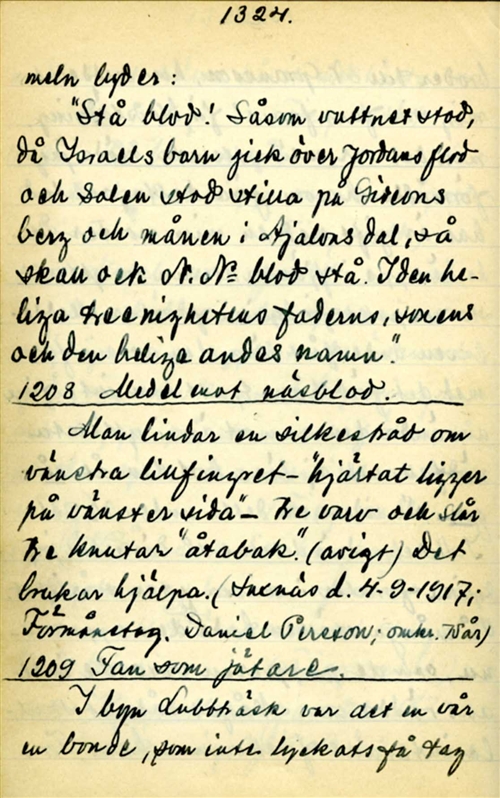 1324.
meln lyder:
"Stå blod! Såsom vattnet stod,
då Israels barn gick över Jordans flod
och solen stod stilla på Gideons
berg och månen i Ajalons dal, så
skall ock N. N:s blod stå. I den he-
liga treenighetens faderns, sonens
och den heliga andes namn".
1208 Medel mot näsblod.
Man lindar en silkestråd om
vänstra lillfingret - "hjärtat ligger
på vänster sida" - tre varv och slår
tre knutar "åtabak". (avigt) Det
brukar hjälpa. ( d. 4-9-1917;
Förmånstag. Daniel Persson; omkr. 75 år)
1209 Fan som jätare.
I byn Lubbträsk var det en vår
en bonde, som inte lyckats få tag